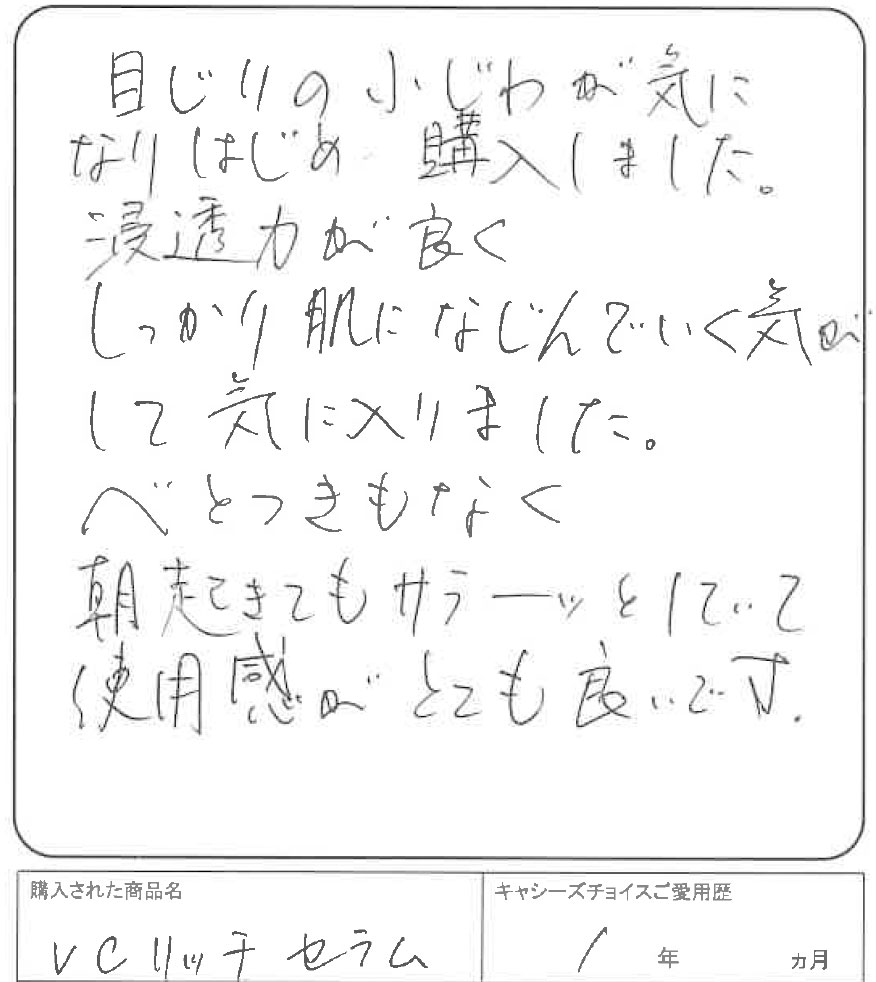 目じりの小じわが気に
なりはじめ 購入しました。
浸透力が良く
しっかり肌になじんでいく気が
して気に入りました。
べとつきもなく
朝起きてもサラーッとしていて
使用感がとても良いです.
購入された商品名
キャシーズチョイスご愛用歴
VCリッチセラム
1 年 カ月